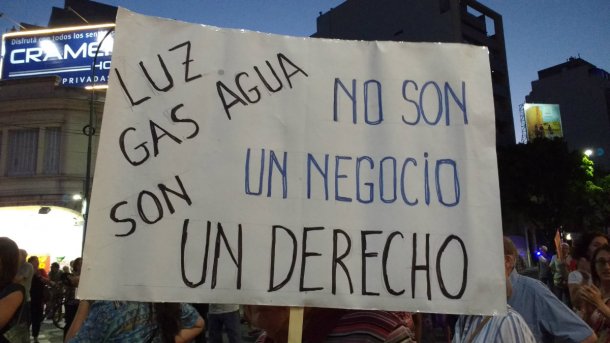 Disfrutá con todos los sent
CRAMER
HO
PRIVADAS
LUZ
GAS AGUA
SON
NO SON
UN NEGOCIO
UN DERECHO